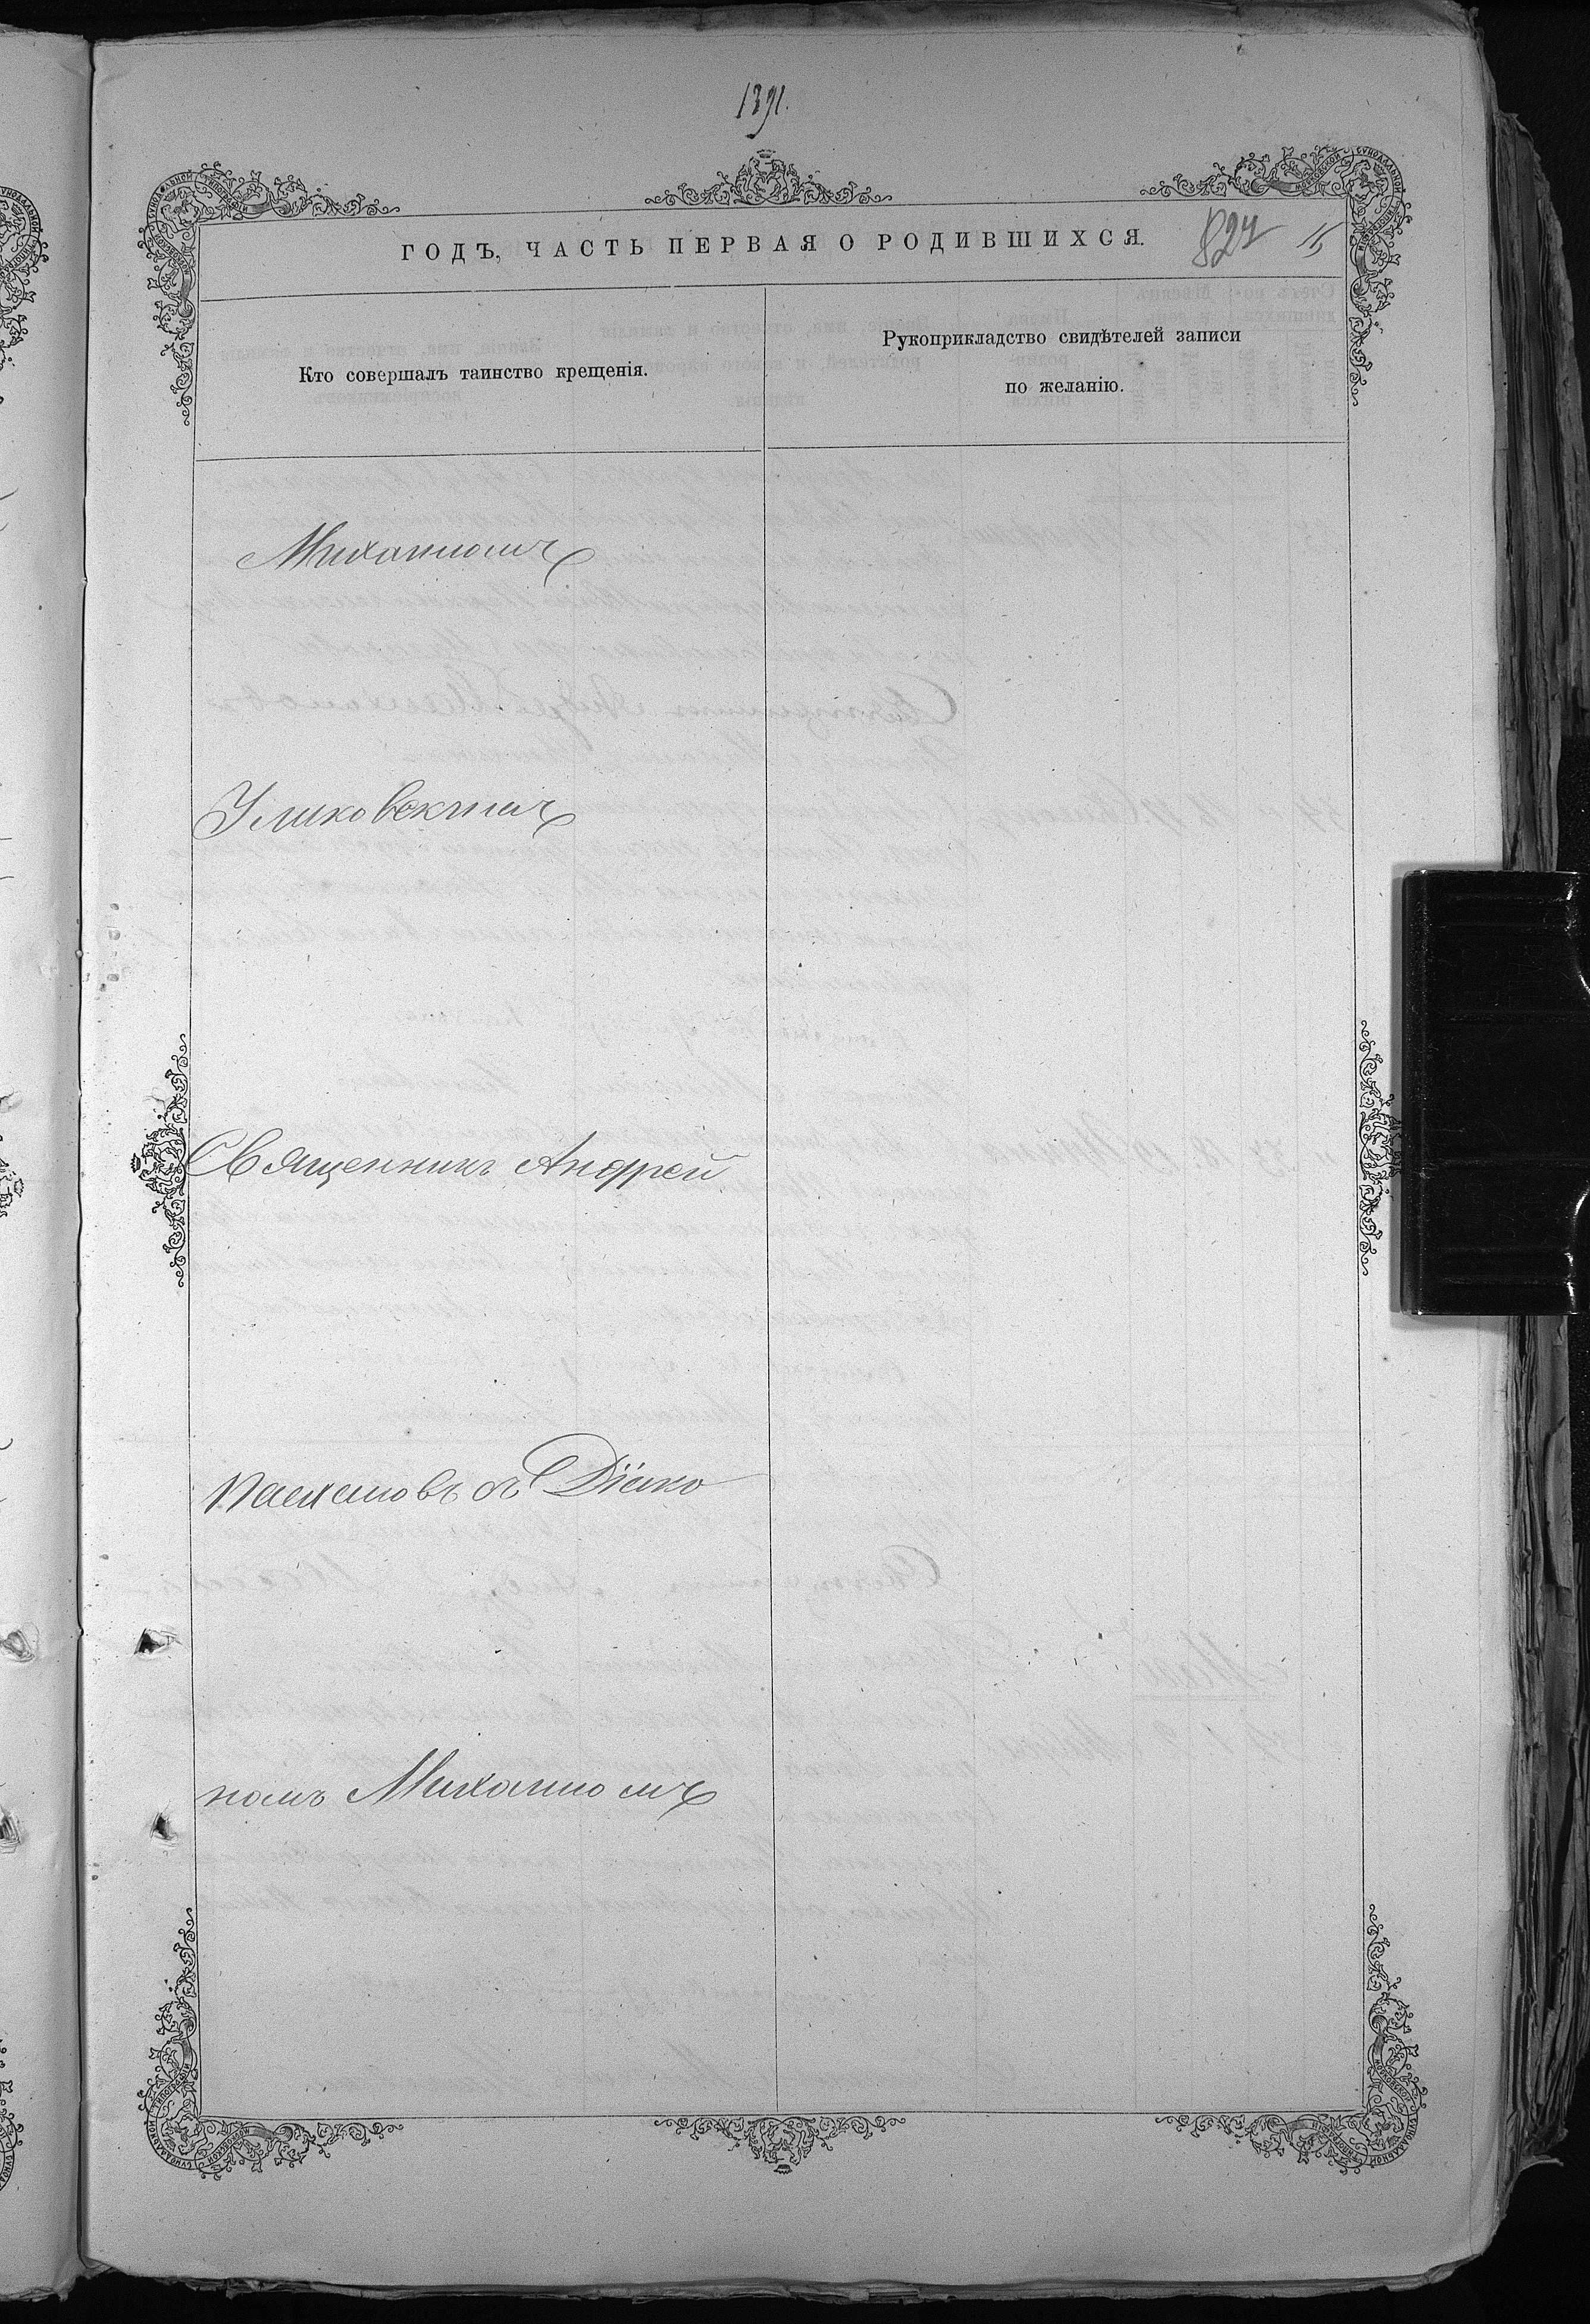 1391.
ГОДЪ, ЧАСТЬ ПЕРВАЯ О РОДИВШИХСЯ.
827 15
Кто совершалъ таинство крещенія.
Рукоприкладство свидѣтелей записи
по желанію.
Михаиломъ
Священникъ Андрей
съ Діако
номъ Михаиломъ